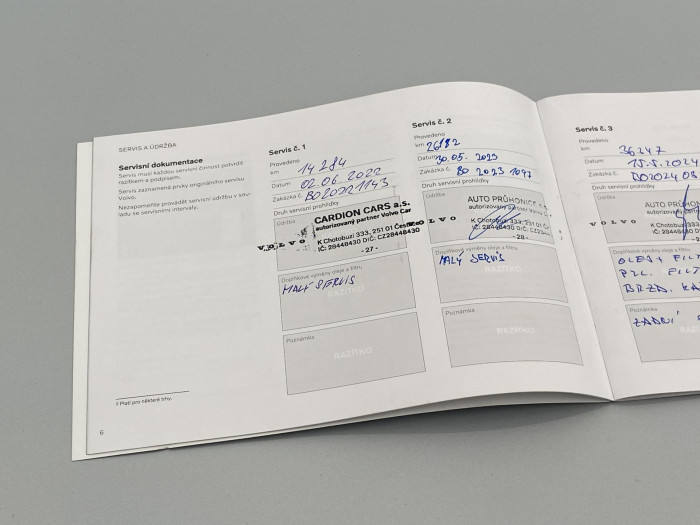 SERVIS A ÚDRŽBA
Servisní dokumentace
Servis musí každou servisní činnost potvrdit
razítkem a podpisem.
Servis zaznamená prvky originálního servisu
Volvo.
Nezapomeňte provádět servisní údržbu v sou-
ladu se servisními intervaly.
1 Platí pro některé trhy.
6
Servis č. 1
Provedeno
km 14 284
Datum 02.06.2022
Zakázka č. BO20221143
Druh servisní prohlídky
Údržba
CARDION CARS a.s.
autorizovaný partner Volvo Car
VOLVO
K Chotobuzi 333, 251 01
IČ: 28448430 DIČ: CZ28448430
- 27 -
Doplňkové výměny oleje a filtru
MALÝ SERVIS
Poznámka
RAZÍTKO
Servis č. 2
Provedeno
km 26182
Datum 30.05. 2023
Zakázka č. BO 2023 1047
Druh servisní prohlídky
Údržba
AUTO PRŮHONICE
autorizovaný partner
VOLVO
K Chotobuzi 333, 251 01
IČ: 28448430
- 28 -
Doplňkové výměny oleje a filtru
MALÝ SERVIS
RAZÍTKO
Poznámka
RAZÍTKO
Servis č. 3
Provedeno
km 36247
Datum 15.5.2024
Zakázka č. BO2024 08
Druh servisní prohlídky
Údržba
AUTO PRŮHON
autorizovaný par
VOLVO
K Chotobuzi 333,
IČ: 28448430
Doplňkové výměny oleje a filtru
OLEJ + FILT
PYL. FILT
BRZD. KA
Poznámka
ZADNÍ